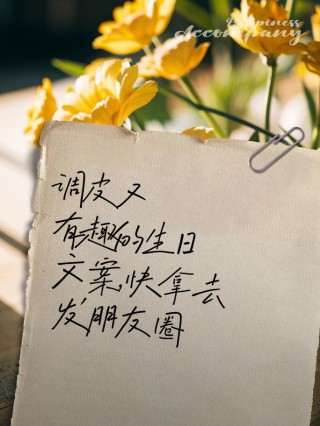 Happiness
Accompany
调皮又
有趣的生日
文案,快拿去
发朋友圈